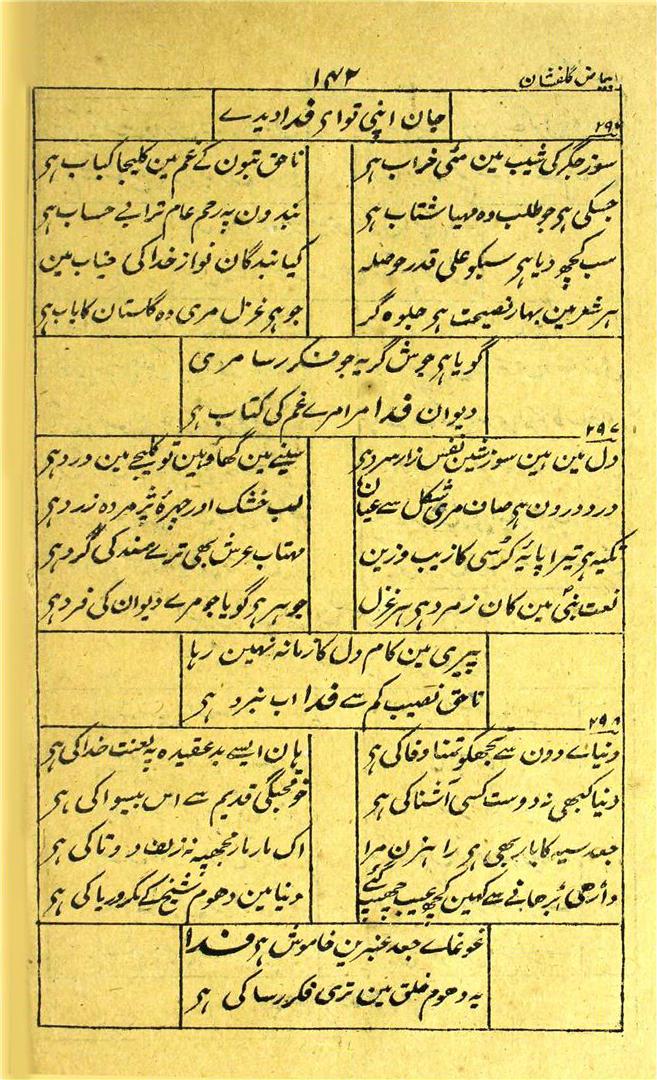 ۱۴۲
بیاض گلفشان
جان اپنی تو ای فدا دیدے
۲۹۶
سوز جگر کی شیب مین مٹی خراب ہی ناحق بتون کے غم مین کلیجا کباب ہی
جسکی ہی جو طلب وہ مہیا شتاب ہی بندون پہ رحم عام ترا بے حساب ہی
سب کچھ دیا ہی سبکو علی قدر حوصلہ کیا بندگان نواز خدا کی جناب مین
ہر شعر مین بہار نصیحت ہی جلوہ گر جو ہی غزل مری وہ گلستان کا باب ہی
گویا ہی جوش گریہ جو فکر رسا مری
دیوان فدا مرا مرے غم کی کتاب ہی
۲۹۷
دل مین ہین سوزشین نفس زار سرد ہی سینے مین گھاؤ ہین تو کلیجے مین درد ہی
درد درون ہی صان مری شکل سے عیان لب خشک اور چہرۂ پژمردہ زرد ہی
تکیہ ہی تیرا پایۂ کرسی کا زیب وزین مہتاب عرش بھی ترے مسند کی گرد ہی
نعت نبی مین کان زمرد ہی ہر غزل جوہر ہی گویا جو مرے دیوان کی فرد ہی
پیری مین کام دل کا زمانہ نہین رہا
ناحق نصیب کم سے فدا اب نبرد ہی
۲۹۸
دنیاے دون سے تجھکو تمنا وفا کی ہی ہان ایسے بد عقیدہ پہ لعنت خدا کی ہی
دنیا کبھی نہ دوست کسی آشنا کی ہی خو قدیم سے اس بیسوا کی ہی
جعد سیہ کا یار بھی ہی راہزن مرا اک مار مار مجھپہ نہ زلف دوتا کی ہی
داڑھی بڑھانے سے کہین کچھ عیب چھپ گئے دنیا مین دھوم شیخ کے مکر و ریا کی ہی
غوغاے جعد عنبرین خاموش ہی فدا
یہ دھوم خلق مین تری فکر رسا کی ہی